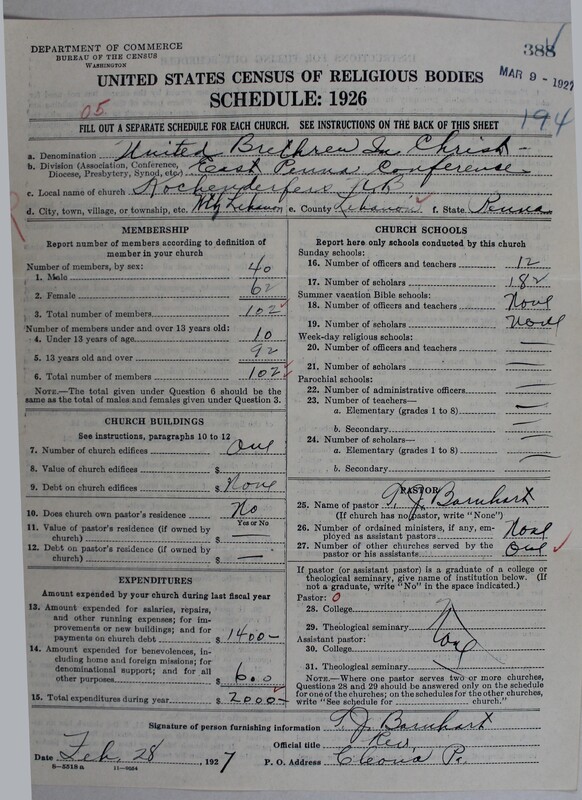 DEPARTMENT OF COMMERCE
BUREAU OF THE CENSUS
WASHINGTON
388
MAR 9 - 1927
UNITED STATES CENSUS OF RELIGIOUS BODIES
SCHEDULE: 1926
05.
194
FILL OUT A SEPARATE SCHEDULE FOR EACH CHURCH. SEE INSTRUCTIONS ON THE BACK OF THIS SHEET
a. Denomination United Brethren In Christ -
b. Division (Association, Conference, Diocese, Presbytery, Synod, etc.) East Penna Conference
c. Local name of church Kochenderfers U.B.
d. City, town, village, or township, etc. Lebanon e. County Lebanon f. State Penna.
MEMBERSHIP
Report number of members according to definition of
member in your church
Number of members, by sex:
1. Male 40
2. Female 62
3. Total number of members 102
Number of members under and over 13 years old:
4. Under 13 years of age 10
5. 13 years old and over 92
6. Total number of members 102
NOTE.—The total given under Question 6 should be
same as the total of males and females given under Question 3.
CHURCH BUILDINGS
See instructions, paragraphs 10 to 12
7. Number of church edifices One
8. Value of church edifices $
9. Debt on church edifices $ None
10. Does church own pastor's residence? No
Yes or No
11. Value of pastor's residence (if owned by
church) $ —
12. Debt on pastor's residence (if owned by
church) $ —
EXPENDITURES
Amount expended by your church during last fiscal year
13. Amount expended for salaries, repairs,
and other running expenses; for im-
provements or new buildings; and for
payments on church debt $ 1400 -
14. Amount expended for benevolences, in-
cluding home and foreign missions; for
denominational support; and for all
other purposes $ 600
15. Total expenditures during year $ 2000 -
CHURCH SCHOOLS
Report here only schools conducted by this church
Sunday schools:
16. Number of officers and teachers 12
17. Number of scholars 182
Summer vacation Bible schools:
18. Number of officers and teachers None
19. Number of scholars None
Week-day religious schools:
20. Number of officers and teachers —
21. Number of scholars —
Parochial schools:
22. Number of administrative officers —
23. Number of teachers—
a. Elementary (grades 1 to 8) —
b. Secondary —
24. Number of scholars—
a. Elementary (grades 1 to 8) —
b. Secondary —
PASTOR
25. Name of pastor T. J. Barnhart
(If church has no pastor, write "None")
26. Number of ordained ministers, if any, em-
ployed as assistant pastors None
27. Number of other churches served by the
pastor or his assistants One
If pastor (or assistant pastor) is a graduate of a college or
theological seminary, give name of institution below. (If
not a graduate, write "No" in the space indicated.)
Pastor: 0
28. College
29. Theological seminary
Assistant pastor:
30. College
31. Theological seminary
NOTE.—Where one pastor serves two or more churches,
Questions 28 and 29 should be answered only on the schedule
for one of the churches; on the schedules for the other churches,
write "See schedule for ____ church."
Signature of person furnishing information T. J. Barnhart
Official title Rev.
Date Feb. 28, 1927 P. O. Address Cleona Pa.
8-5318a 11-9054